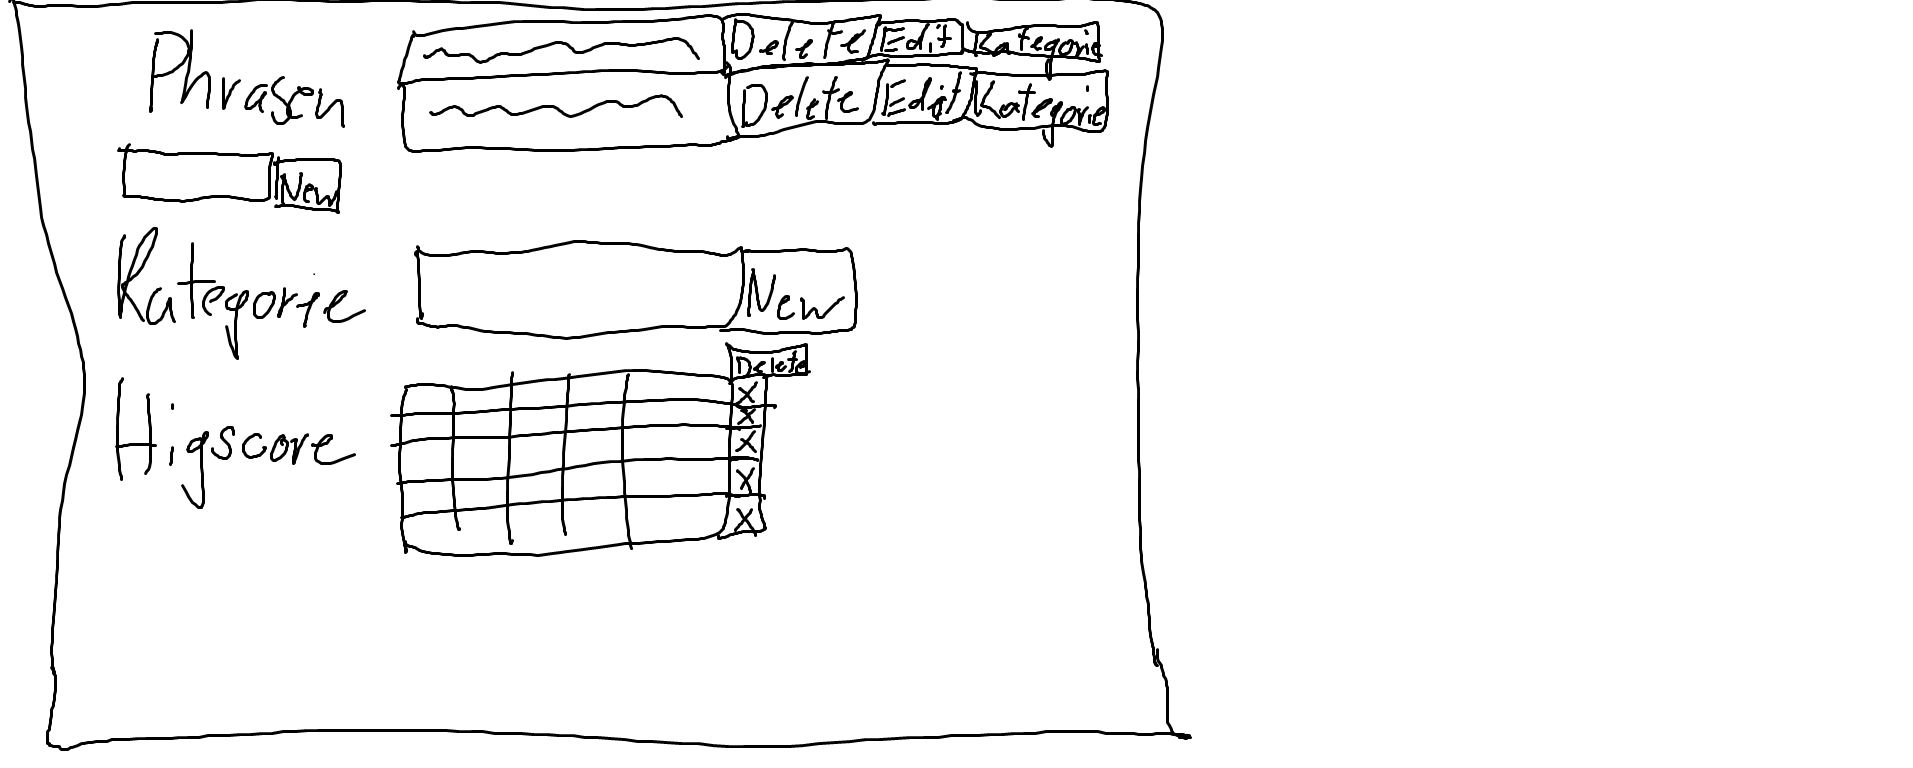 Phrasen
Delete Edit Kategorie
Delete Edit Kategorie
New
Kategorie
New
Delete
Higscore
X
X
X
X
X